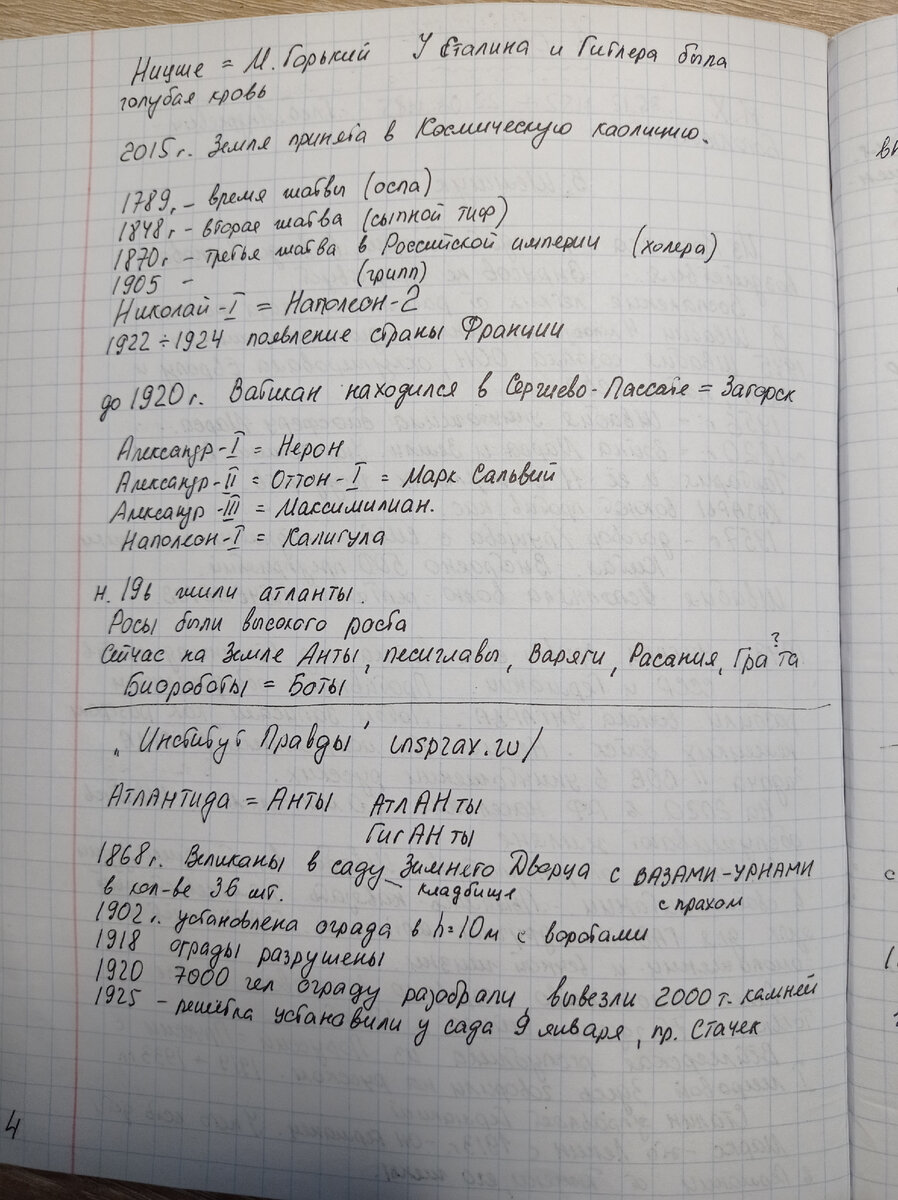 Ницше = М. Горький У Сталина и Гитлера была
голубая кровь
2015 г. Земля принята в Космическую каолицию.
1789 г. – время жатвы (оспа)
1848 г – вторая жатва (сыпной тиф)
1870 г – третья жатва в Российской империи (холера)
1905 – (грипп)
Николай-I = Наполеон-2
1922 ÷ 1924 появление страны Франции
до 1920 г. Ватикан находился в Сергиево-Пассате = Загорск
Александр-I = Нерон
Александр-II = Оттон-I = Марк Сальвий
Александр-III = Максимилиан.
Наполеон-I = Калигула
н. 19в жили атланты.
Росы были высокого роста
Сейчас на Земле Анты, песиглавы, Варяги, Расания, Гра?та
Биороботы = Боты
„Институт Правды" insprav.ru/
Атлантида = Анты АтлАНты
ГигАНты
1868 г. Великаны в саду Зимнего Дворца с ВАЗАМИ-УРНАМИ
в кол-ве 36 шт. – кладбище с прахом
1902 г. установлена ограда в h=10м с воротами
1918 ограды разрушены
1920 7000 чел ограду разобрали, вывезли 2000 т. камней
1925 – решётка установили у сада 9 января, пр. Стачек
4